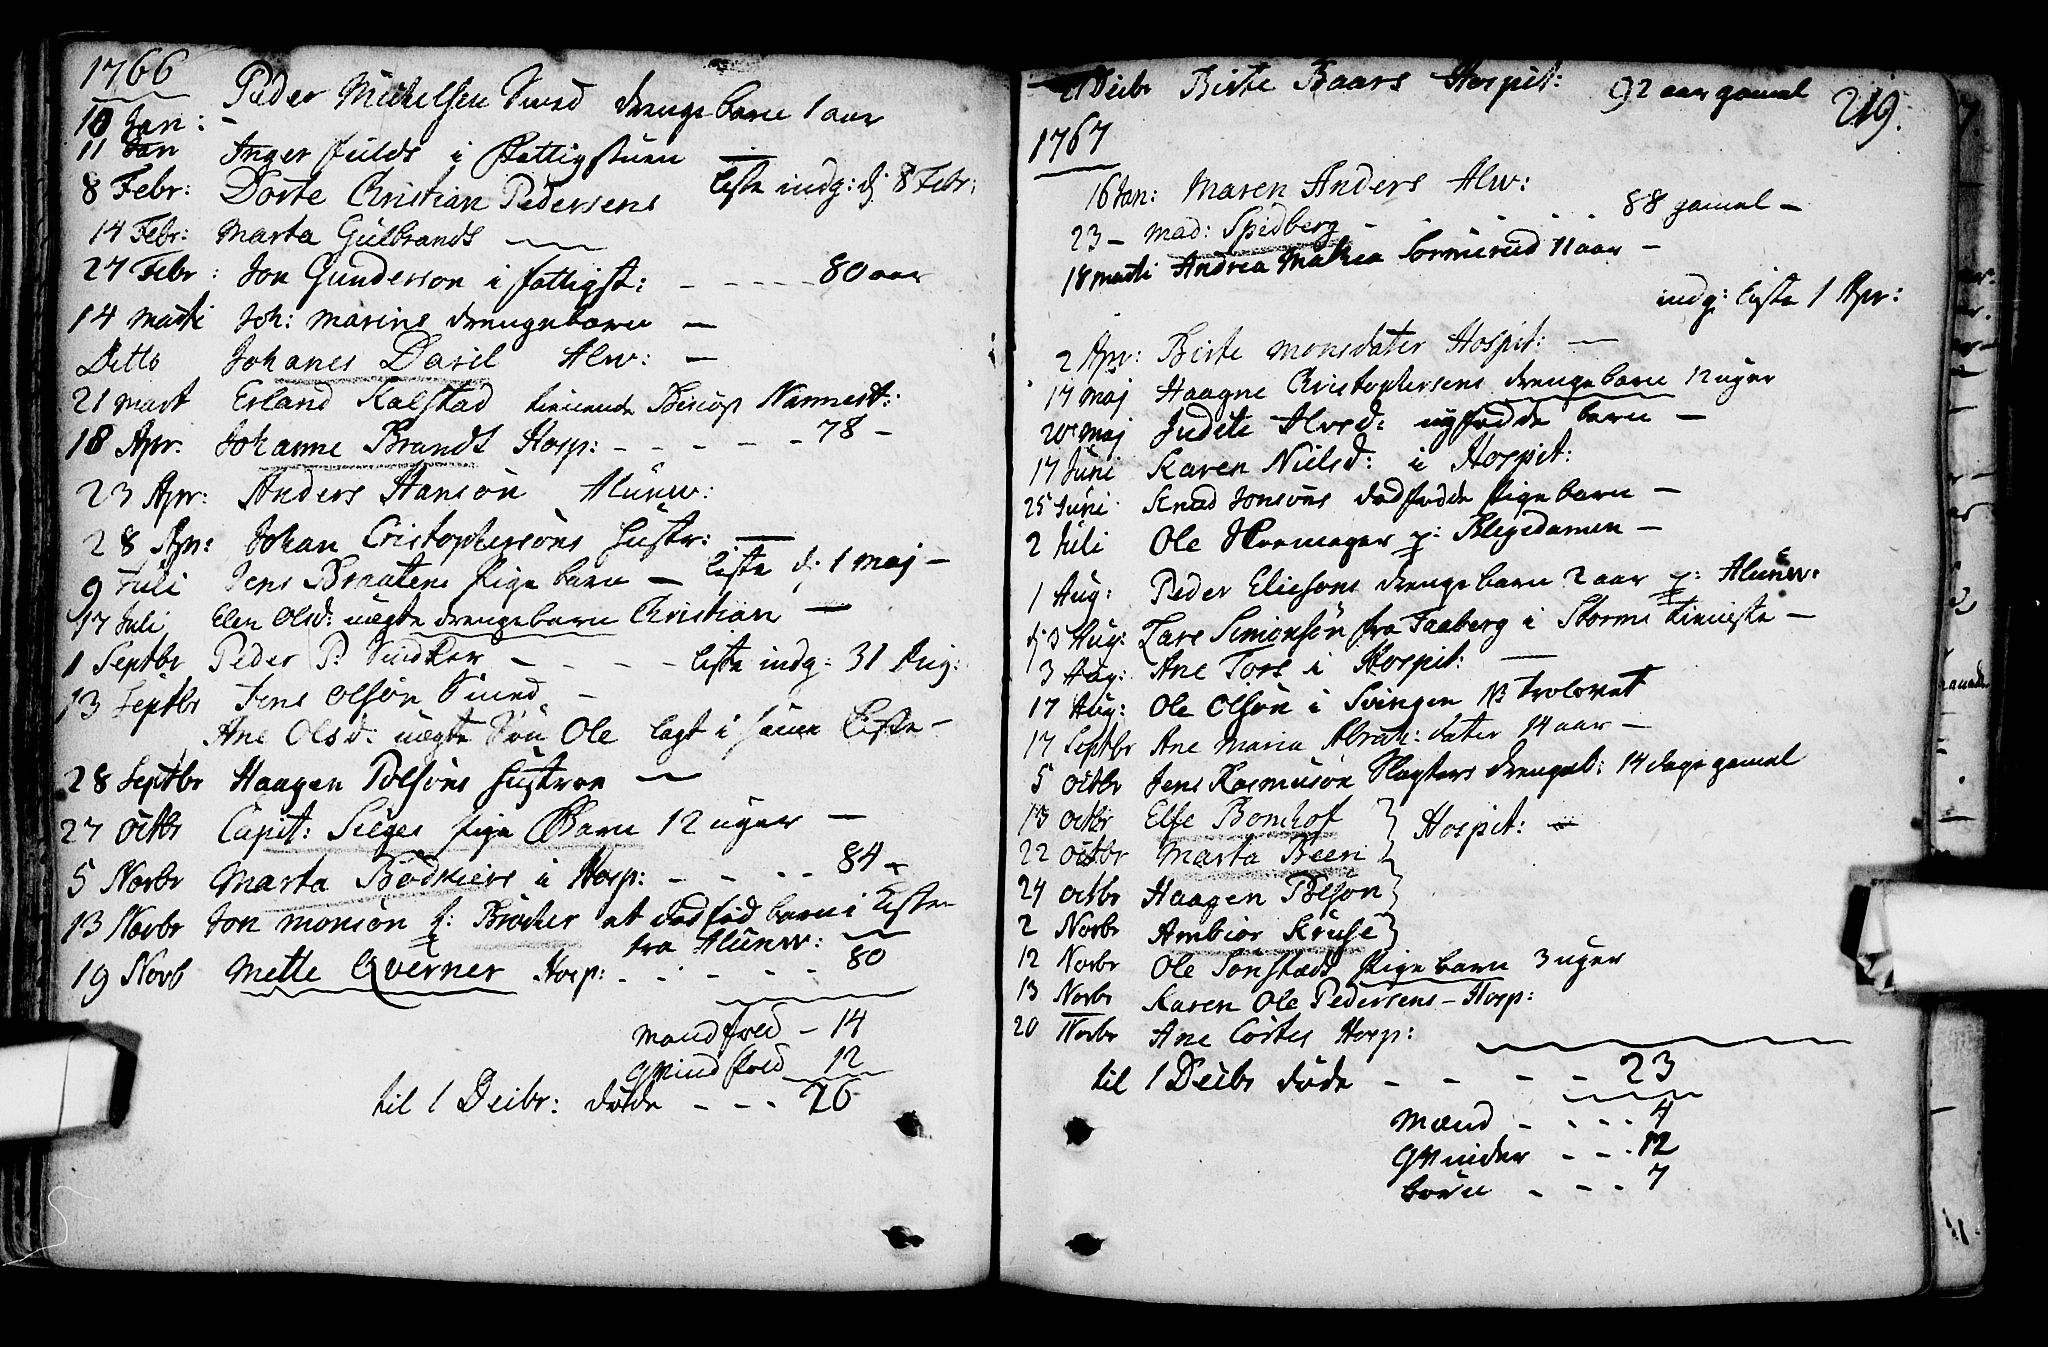 1766
10 Jan: Peder Michelsen Smed drengebarn 1 aar
11 Jan Inger fulds i fattigstuen —
8 Febr: Dorte Christian Pedersens liste indg: d: 8 Febr:
14 Febr: Marta Gulbrands —
27 Febr: Jon Gunderson i fattigst: - - - - 80 aar
14 marti Joh: marins drengebarn —
Ditto Johanes Daxil Alw: —
21 mart Erland Kalstad tienende Nannest:
18 Apr. Johanne Brandt Hosp: - - - - - 78 -
23 Apr: Anders Hansøn Alunw:
28 Apr: Johan Cristophersøns hustr: —
9 Juli Jens pigebarn — liste d: 1 maj —
17 Juli Elen Olsd: uægte drengebarn Christian —
1 Septbr Peder P: - - - - liste indg: 31 Aug:
13 Septbr Jens Olsøn Smed —
Ane Olsd: uægte Søn Ole lagt i samme kiste —
28 Septbr Haagen Polsøns hustroe —
27 Octbr Capit: Seeges pige Barn 12 uger —
5 Novbr Marta Bødkiers i Hosp: - - - - 84 -
13 Novbr Jon monsøn et dødfød barn i kiste
fra Alunw: —
19 Novb Mette Qverner Hosp: - - - - - 80
mandkøed - 14
qvindkøed 12
til 1 Decbr: døde - - - 26
219.
21 Decbr Birte Baars Hospit: 92 aar gamel
1767
16 Jan: Maren Anders Alw:
23 - mad: Spidberg - - - - 88 gamel -
18 marti Andrea Mathea 11 aar —
indg: liste 1 Apr:
2 Apr: Birte monsdater Hospit: —
17 Maj Haagne Christophersens drengebarn 12 uger
20 Maj Judite Alvsd: nyfødde barn —
17 Juni Karen Nielsd: i Hospit:
25 Juni Knud Jonsøns dødfødde pigebarn —
2 Juli Ole p: Blegedamen —
1 Aug: Peder Elicsons drengebarn 2 aar p: Alunw:
d: 3 Aug: Lars Simonsøn fra Faaberg i Storms tieniste —
3 Aug: Ane Tors i Hospit: —
17 Aug: Ole Olsøn i Svingen NB trolovet
17 Septbr Ane Maria Abrah: dater 14 aar —
5 Octbr Jens Rasmusøn Slagters drengeb: 14 dage gamel
13 Octbr Else Bomhof } Hospit: —
22 Octbr Marta Been }
24 Octbr Haagen Polsøn }
2 Novbr Ambiør Kruse }
12 Novbr Ole Sønstæds pigebarn 3 uger
13 Novbr Karen Ole Pedersens — Hosp:
20 Novbr Ane Cortes Hosp:
til 1 Decbr døde - - - - 23
Mænd - - - - 4
Qvinder - - - 12
børn - - - 7